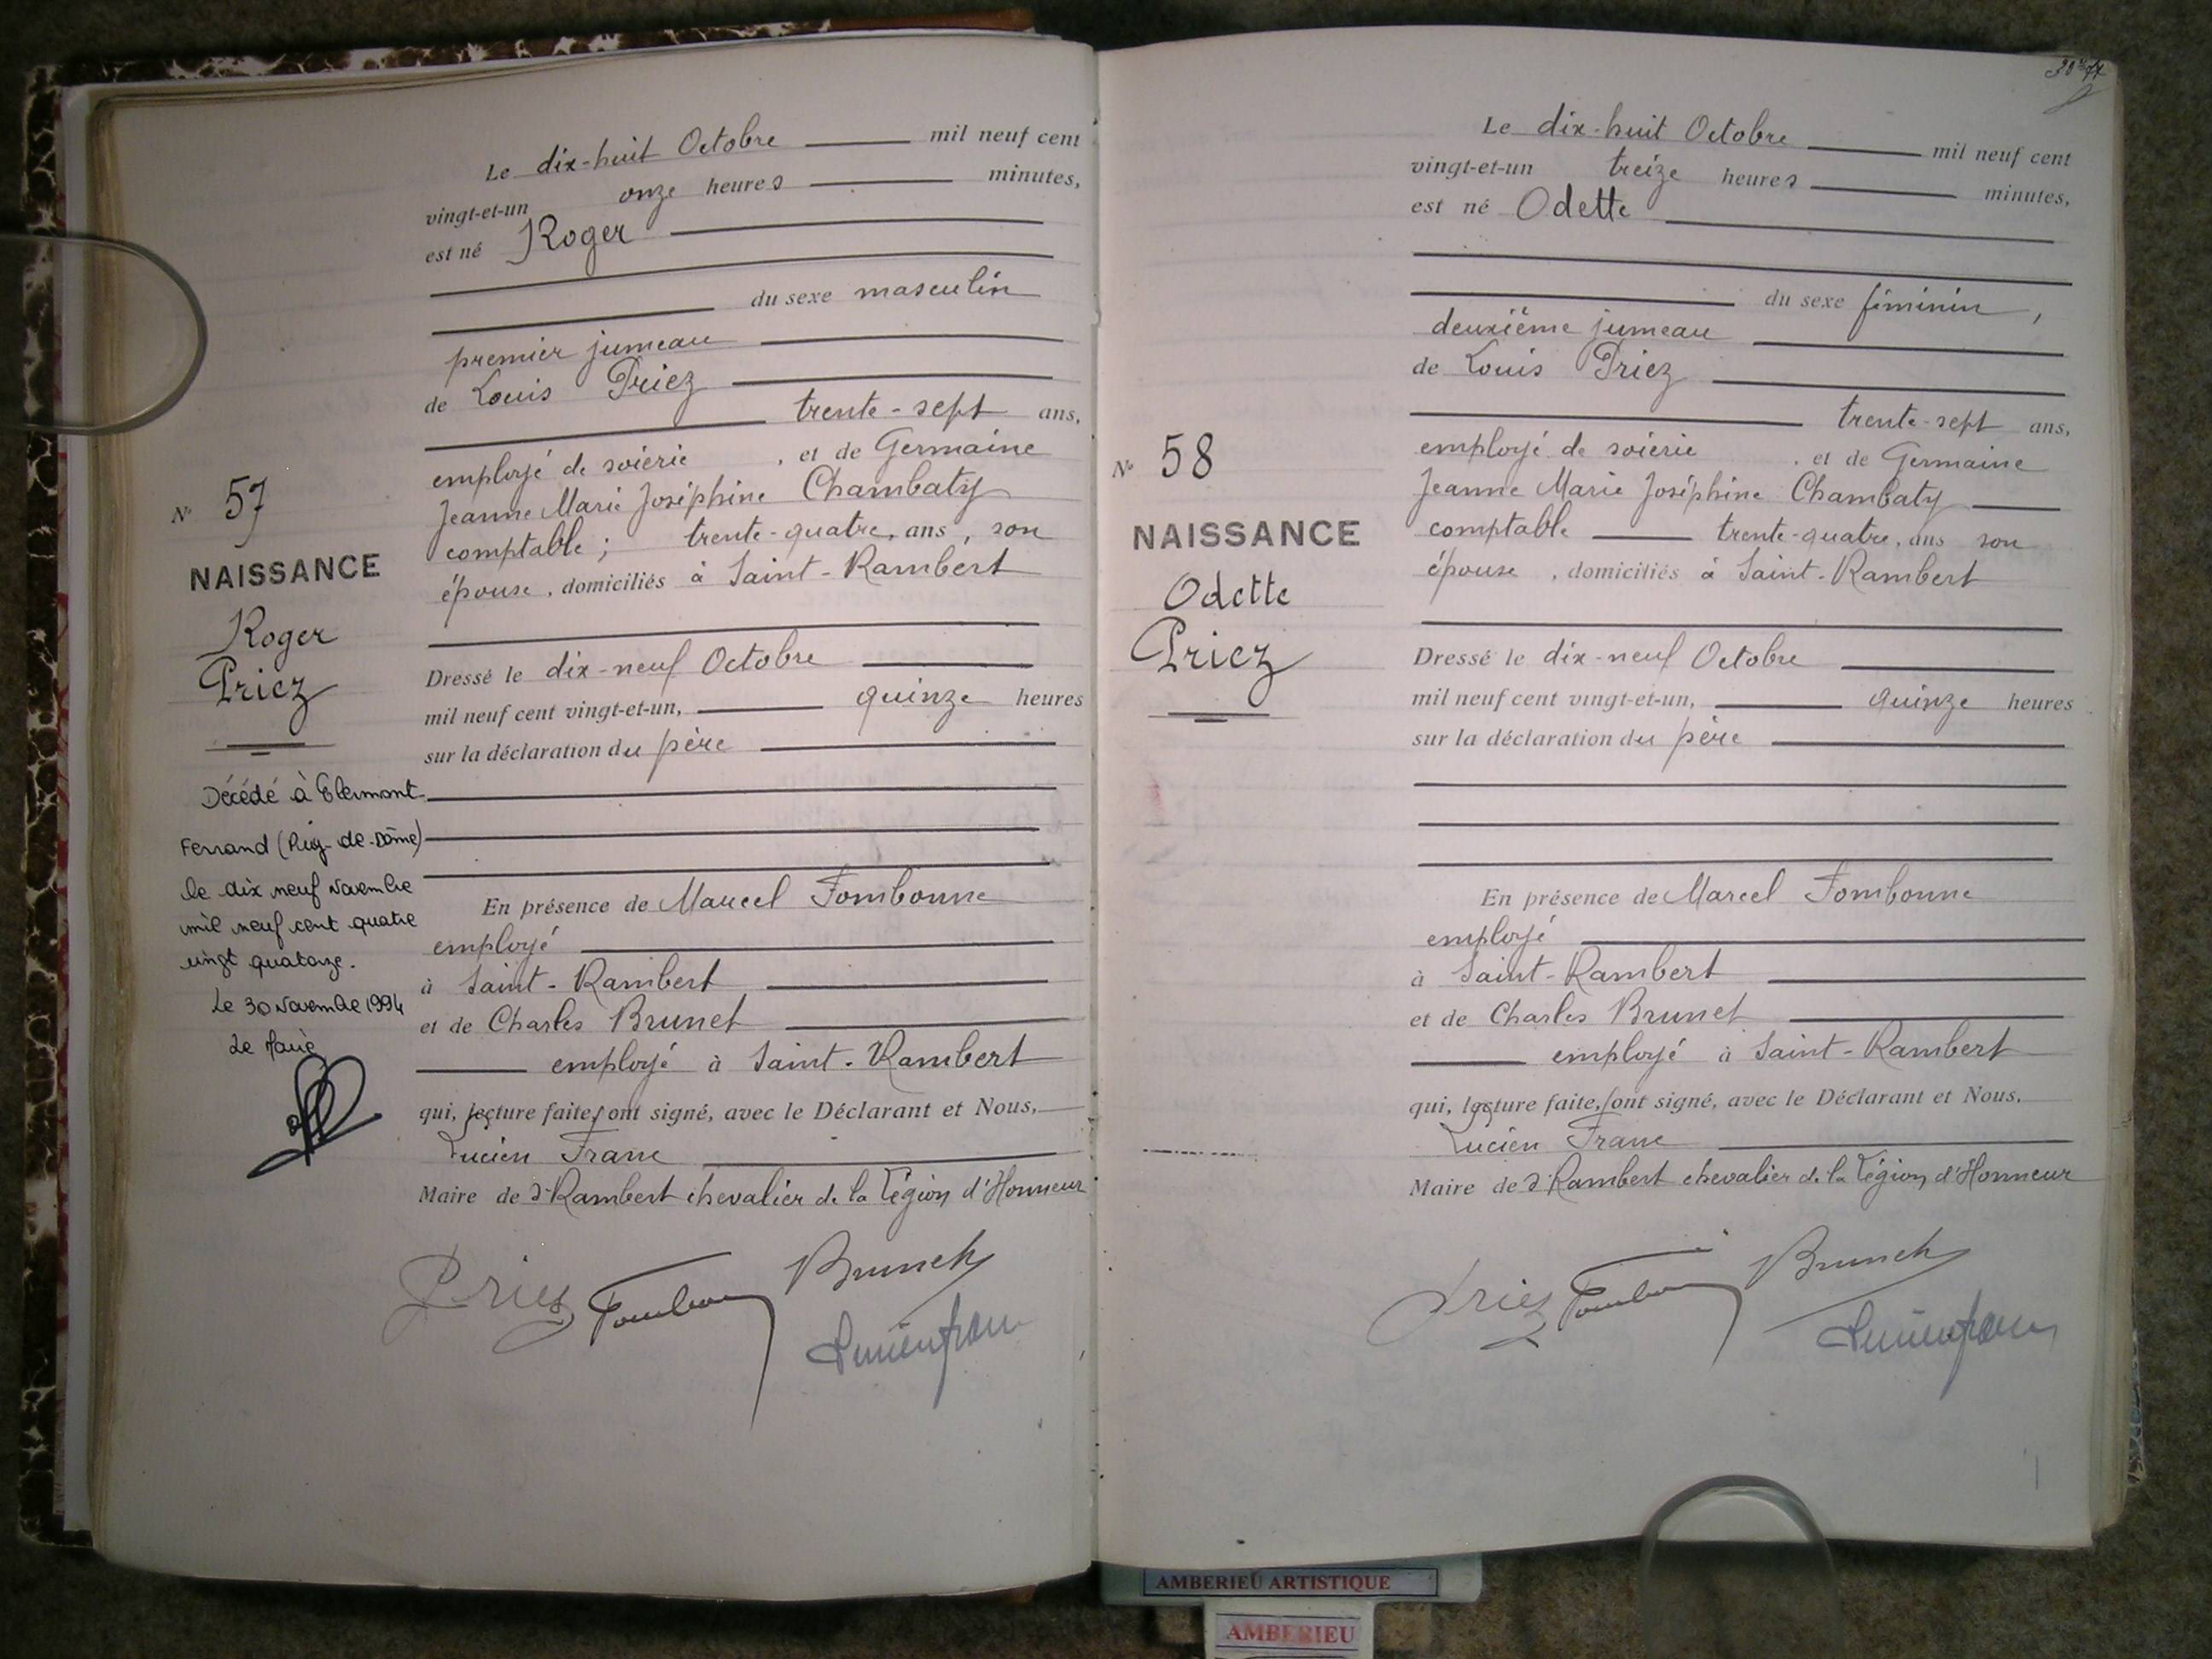 Le dix-huit Octobre mil neuf cent
vingt-et-un onze heures minutes,
est né Roger
du sexe masculin
premier jumeau
de Louis Priez
trente-sept ans,
employé de soierie , et de Germaine
Jeanne Marie Joséphine Chambaty
comptable ; trente-quatre, ans, son
épouse, domiciliés à Saint-Rambert
Dressé le dix-neuf Octobre
mil neuf cent vingt-et-un, quinze heures
sur la déclaration du père
En présence de Marcel Fombonne
employé
à Saint-Rambert
et de Charles Brunet
employé à Saint-Rambert
qui, lecture faite, ont signé, avec le Déclarant et Nous,
Lucien Franc
Maire de St Rambert chevalier de la Légion d'Honneur
Priez
Brunet
N° 57
NAISSANCE
Roger
Priez
Décédé à Clermont-
Ferrand (Puy-de-Dôme)
le dix neuf Novembre
mil neuf cent quatre
vingt quatorze.
Le 30 Novembre 1994
Le Maire
Le dix-huit Octobre mil neuf cent
vingt-et-un treize heures minutes,
est né Odette
du sexe féminin,
deuxième jumeau
de Louis Priez
trente-sept ans,
employé de soierie , et de Germaine
Jeanne Marie Joséphine Chambaty
comptable trente-quatre, ans son
épouse, domiciliés à Saint-Rambert
Dressé le dix-neuf Octobre
mil neuf cent vingt-et-un, quinze heures
sur la déclaration du père
En présence de Marcel Fombonne
employé
à Saint-Rambert
et de Charles Brunet
employé à Saint-Rambert
qui, lecture faite, ont signé, avec le Déclarant et Nous,
Lucien Franc
Maire de St Rambert chevalier de la Légion d'Honneur
Priez
Brunet
N° 58
NAISSANCE
Odette
Priez
AMBERIEU ARTISTIQUE
AMBERIEU